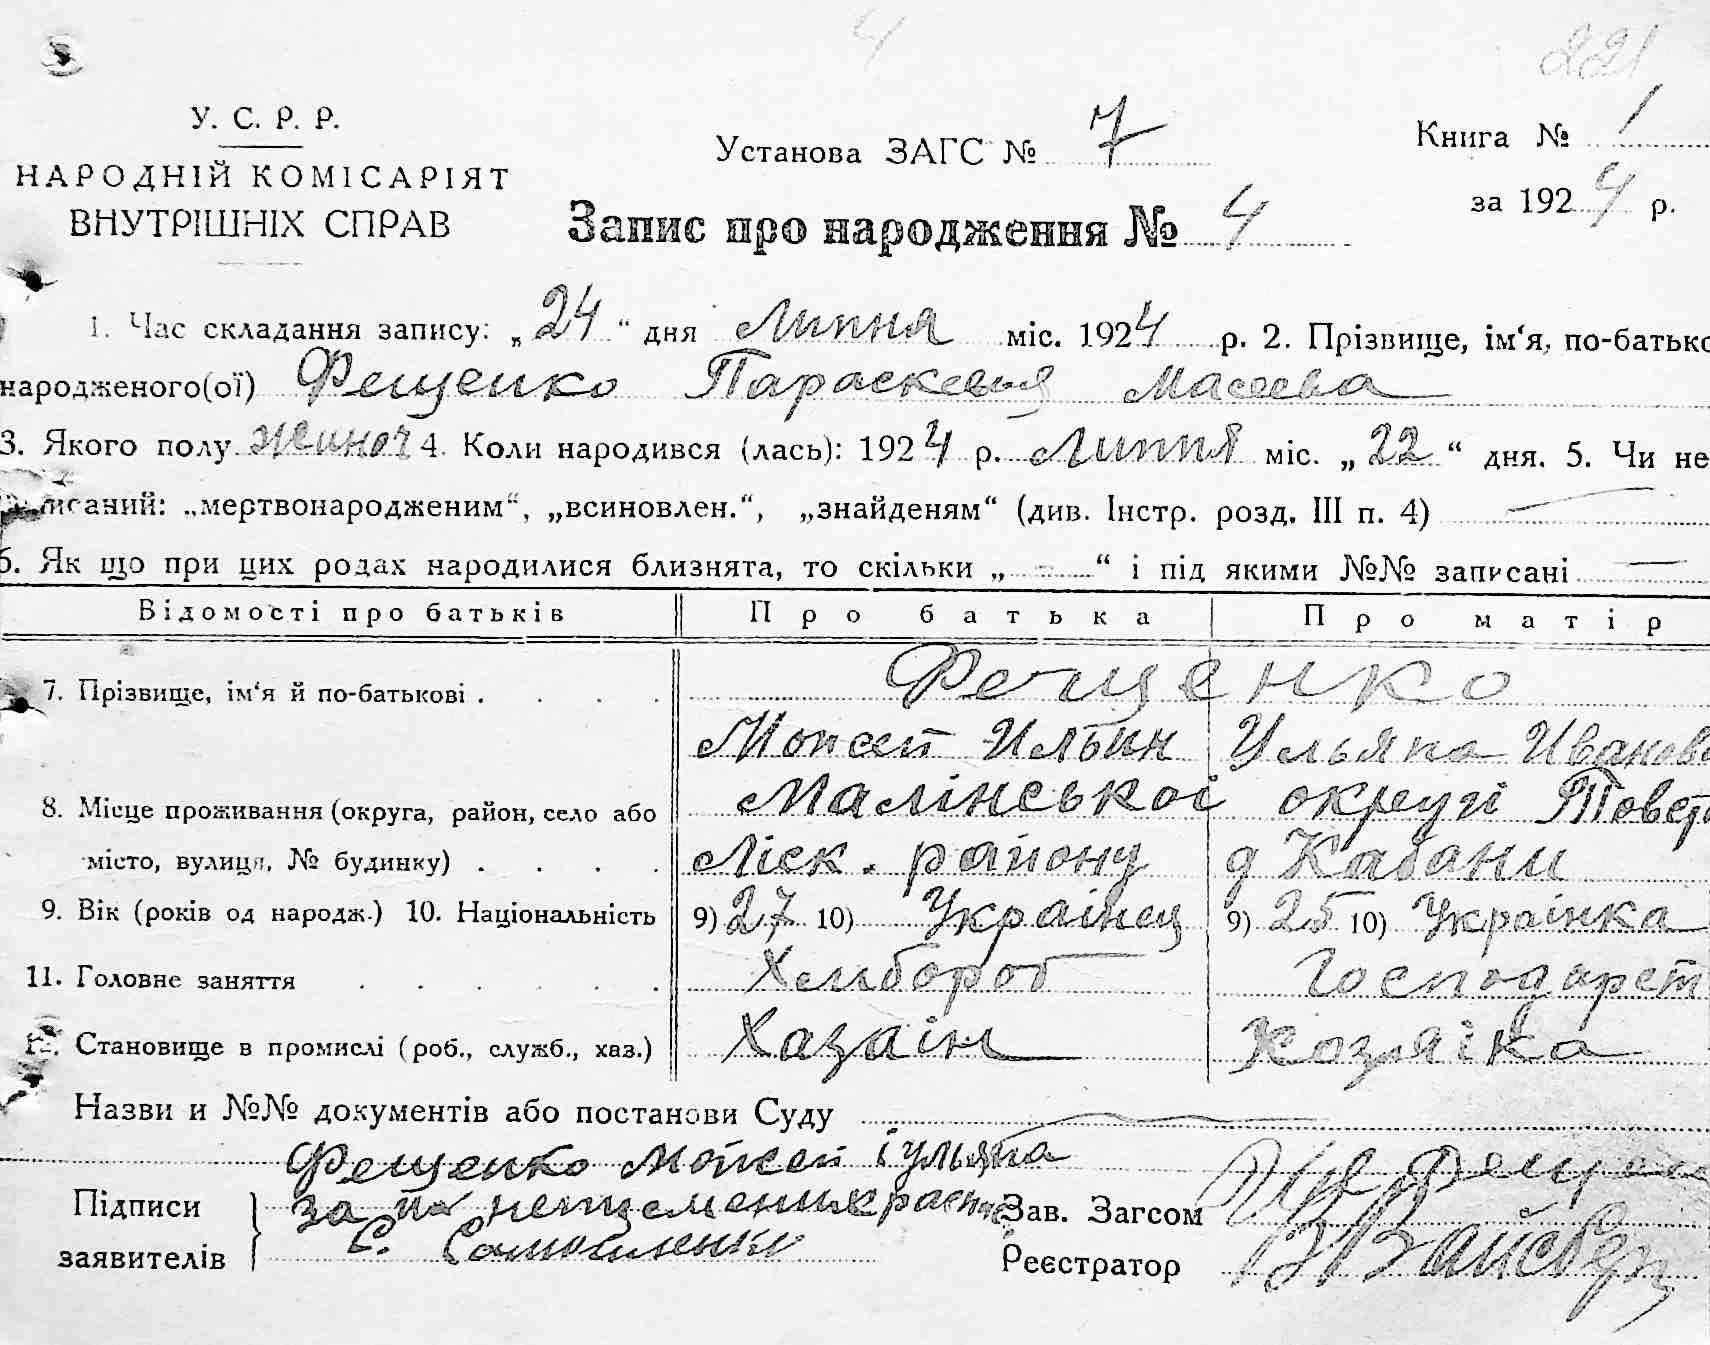 4
221
У. С. Р. Р.
НАРОДНІЙ КОМІСАРІЯТ
ВНУТРІШНІХ СПРАВ
Установа ЗАГС № 7
Книга № 1
за 1924 р.
Запис про народження № 4
1. Час складання запису: „24“ дня Липня міс. 1924 р. 2. Прізвище, ім‘я, по-батько
народженого(ої) Фещенко Параскевія Масеева
3. Якого полу жиноч 4. Коли народився (лась): 1924 р. Липня міс. „22“ дня. 5. Чи не
писаний: „мертвонародженим“, „всиновлен.“, „знайденям“ (див. Інстр. розд. III п. 4)
6. Як що при цих родах народилися близнята, то скільки „ - “ і під якими №№ записані —
Відомості про батьків Про батька Про матір
7. Прізвище, ім‘я й по-батькові . . . . Фещенко
Мойсей Ильин Ульяна Иванов
8. Місце проживання (округа, район, село або Малінської округі
місто, вулиця, № будинку) . . . . Ліск. району д Кабани
9. Вік (років од народж.) 10. Національність 9) 27 10) Українец 9) 25 10) Українка
11. Головне заняття . . . . . . Хлибороб Господарст
12. Становище в промислі (роб., служб., хаз.) Хазаін Хозяїка
Назви и №№ документів або постанови Суду
Фещенко Мойсей і Ульяна
Підписи за их
заявителів С. Самойленко
Зав. Загсом Фещен
Реєстратор В Вайсбер